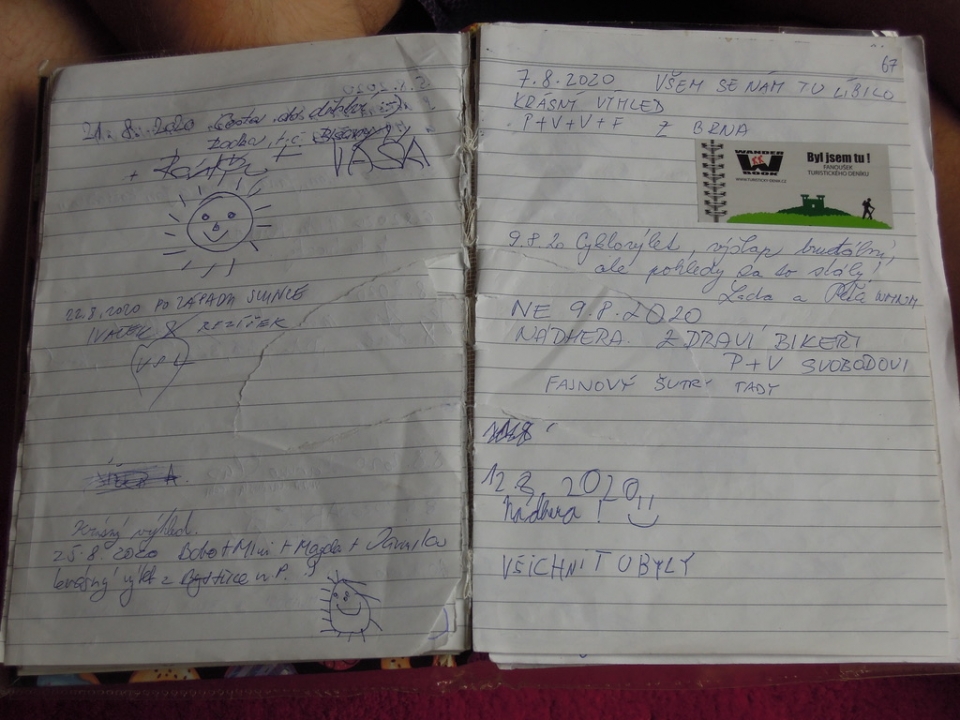 21.8.2020
+ VAŠA
22.8.2020 PO ZÁPADU SLUNCE
Krásný výhled.
25.8.2020 Bobo+Mini+Magda+
krásný výlet z Bystřice n.P.
67
7.8.2020 VŠEM SE NÁM TU LÍBILO
KRÁSNÍ VÝHLED
P+V+V+F Z BRNA
WANDER BOOK
WWW.TURISTICKY-DENIK.CZ
Byl jsem tu !
FANOUŠEK
TURISTICKÉHO DENÍKU
9.8.20 Cyklovýlet, výšlap brutální,
ale pohledy za to stály!
Lada a Péťa
NE 9.8.2020
NÁDHERA. ZDRAVÍ BIKEŘI
P+V SVOBODOVI
FAJNOVÝ ŠUTRY TADY
12.8.2020!!
Nádhera !
VŠICHNI TU BYLY